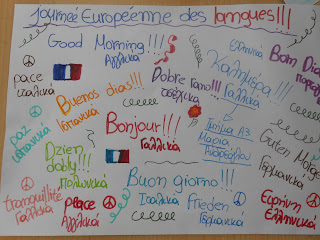 Journeé Européenne des langues!!!
Good Morning!!!
Αγγλικά
Ελληνικά
Καλημέρα!!!
Γαλλικά
Bom Dia
pace
Ιταλικά
Dobre rano!!!
τσέχικα
Buenos dias!!!
Ισπανικά
Bonjour!!!
Γαλλικά
Τμήμα Α3
Μαρία
paz
Ισπανικά
Dzien
dobly!!!
Πολωνικά
Guten Morgen
Γερμανικά
Buon giorno!!!
Ιταλικά
tranquillité
Γαλλικά
Peace
Αγγλικά
Frieden
Γερμανικά
Ειρήνη
Ελληνικά